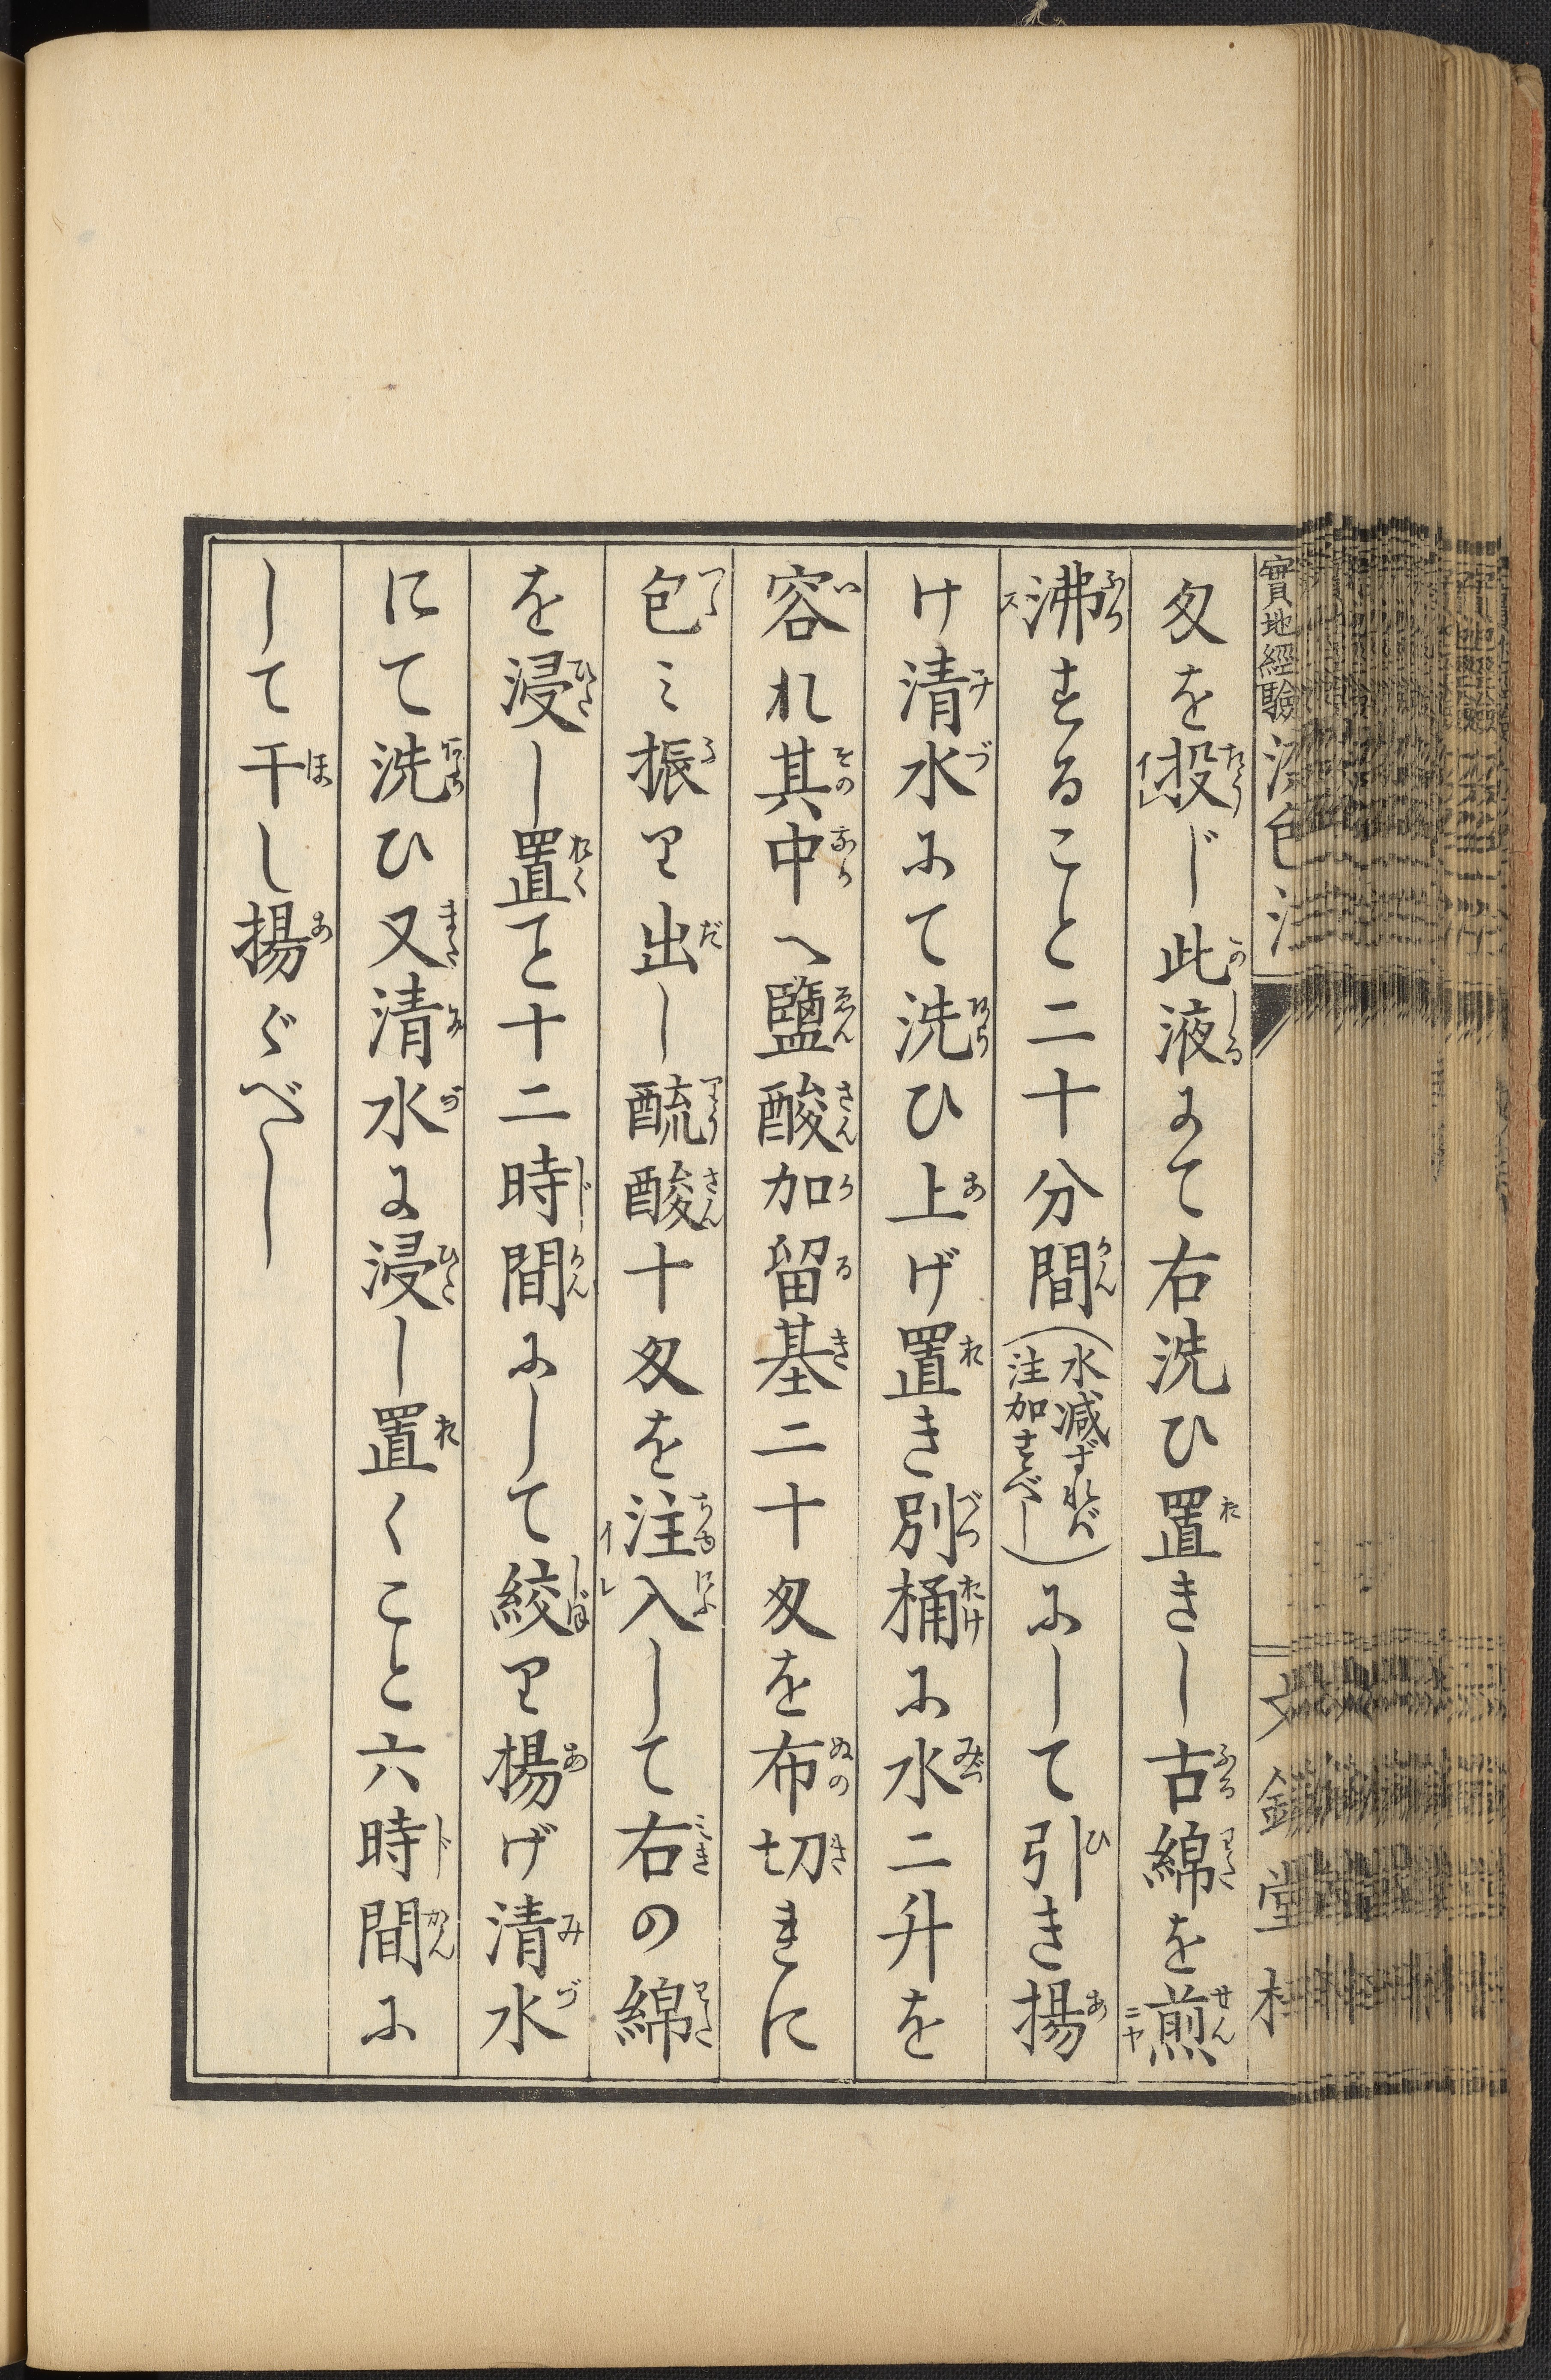 實地經驗
匁を投じ此液にて右洗ひ置きし古綿を煎
沸すること二十分間(水減ずれバ注加すべし)にして引き揚
け清水にて洗ひ上げ置き別桶に水二升を
容れ其中へ鹽酸加留基二十匁を布切きれに
包ミ振り出し酼酸十匁を注入して右の綿
を浸し置こと十二時間にして絞り揚げ清水
にて洗ひ又清水に浸し置くこと六時間に
して干し揚ぐべし